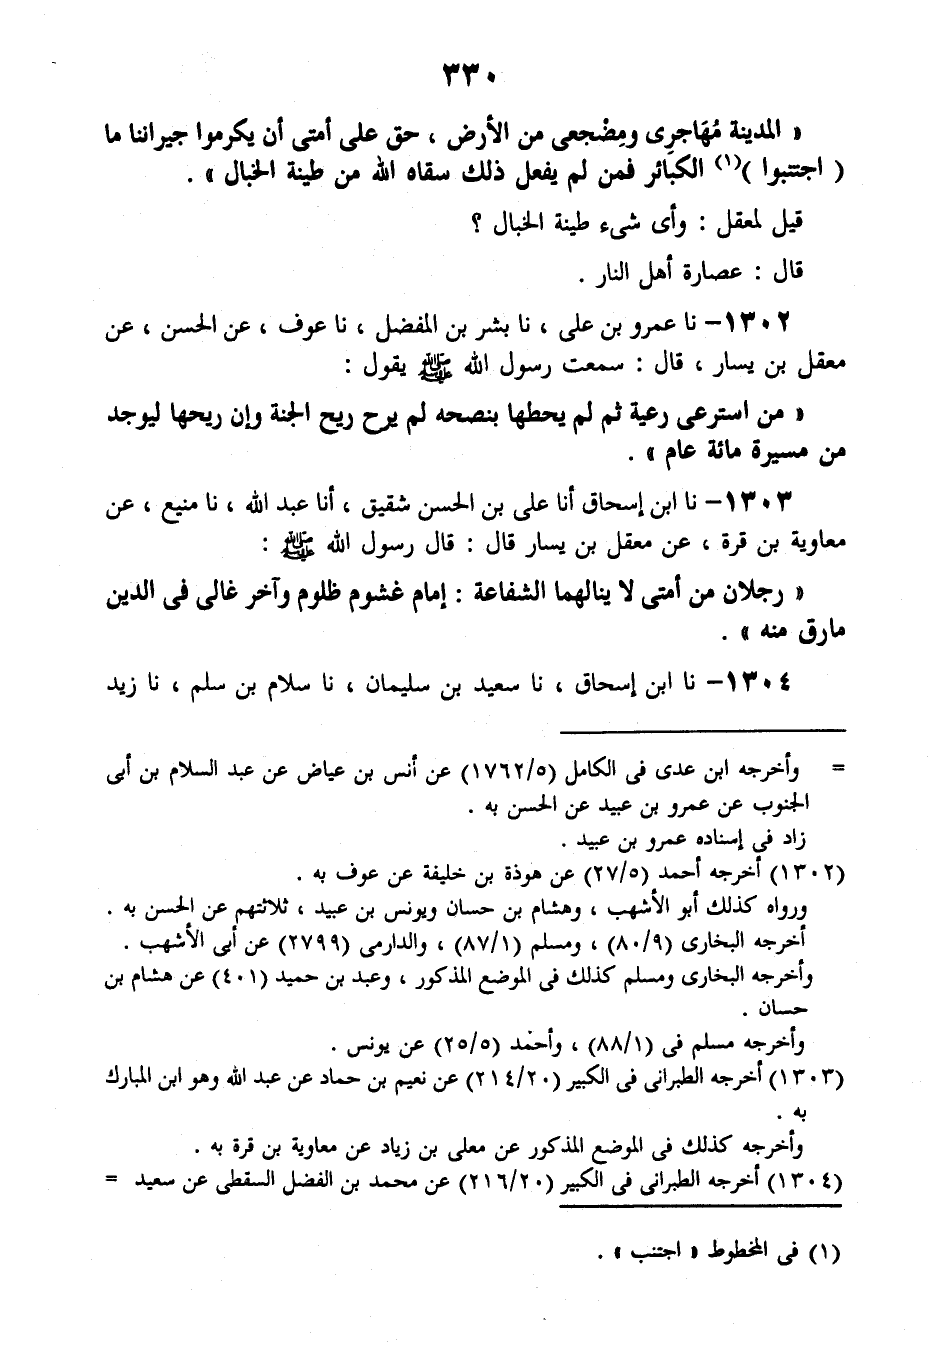 ٣٣٠
« المدينة مُهَاجرِى ومِضْجعى من الأرض ، حق على أمتى أن يكرموا جيراننا ما
( اجتنبوا )(١) الكبائر فمن لم يفعل ذلك سقاه الله من طينة الخبال » .
قيل لمعقل : وأى شىء طينة الخبال ؟
قال : عصارة أهل النار .
١٣٠٢- نا عمرو بن على ، نا بشر بن المفضل ، نا عوف ، عن الحسن ، عن
معقل بن يسار ، قال : سمعت رسول الله ﷺ يقول :
« من استرعى رعية ثم لم يحطها بنصحه لم يرح ريح الجنة وإن ريحها ليوجد
من مسيرة مائة عام » .
١٣٠٣- نا ابن إسحاق أنا على بن الحسن شقيق ، أنا عبد الله ، نا منيع ، عن
معاوية بن قرة ، عن معقل بن يسار قال : قال رسول الله ﷺ :
« رجلان من أمتى لا ينالهما الشفاعة : إمام غشوم ظلوم وآخر غالى فى الدين
مارق منه » .
١٣٠٤- نا ابن إسحاق ، نا سعيد بن سليمان ، نا سلام بن سلم ، نا زيد
= وأخرجه ابن عدى فى الكامل (١٧٦٢/٥) عن أنس بن عياض عن عبد السلام بن أبى
الجنوب عن عمرو بن عبيد عن الحسن به .
زاد فى إسناده عمرو بن عبيد .
(١٣٠٢) أخرجه أحمد (٢٧/٥) عن هوذة بن خليفة عن عوف به .
ورواه كذلك أبو الأشهب ، وهشام بن حسان ويونس بن عبيد ، ثلاثتهم عن الحسن به .
أخرجه البخارى (٨٠/٩) ، ومسلم (٨٧/١) ، والدارمى (٢٧٩٩) عن أبى الأشهب .
وأخرجه البخارى ومسلم كذلك فى الموضع المذكور ، وعبد بن حميد (٤٠١) عن هشام بن
حسان .
وأخرجه مسلم فى (٨٨/١) ، وأحمد (٢٥/٥) عن يونس .
(١٣٠٣) أخرجه الطبرانى فى الكبير (٢١٤/٢٠) عن نعيم بن حماد عن عبد الله وهو ابن المبارك
به .
وأخرجه كذلك فى الموضع المذكور عن معلى بن زياد عن معاوية بن قرة به .
(١٣٠٤) أخرجه الطبرانى فى الكبير (٢١٦/٢٠) عن محمد بن الفضل السقطى عن سعيد =
(١) فى المخطوط « اجتنب » .